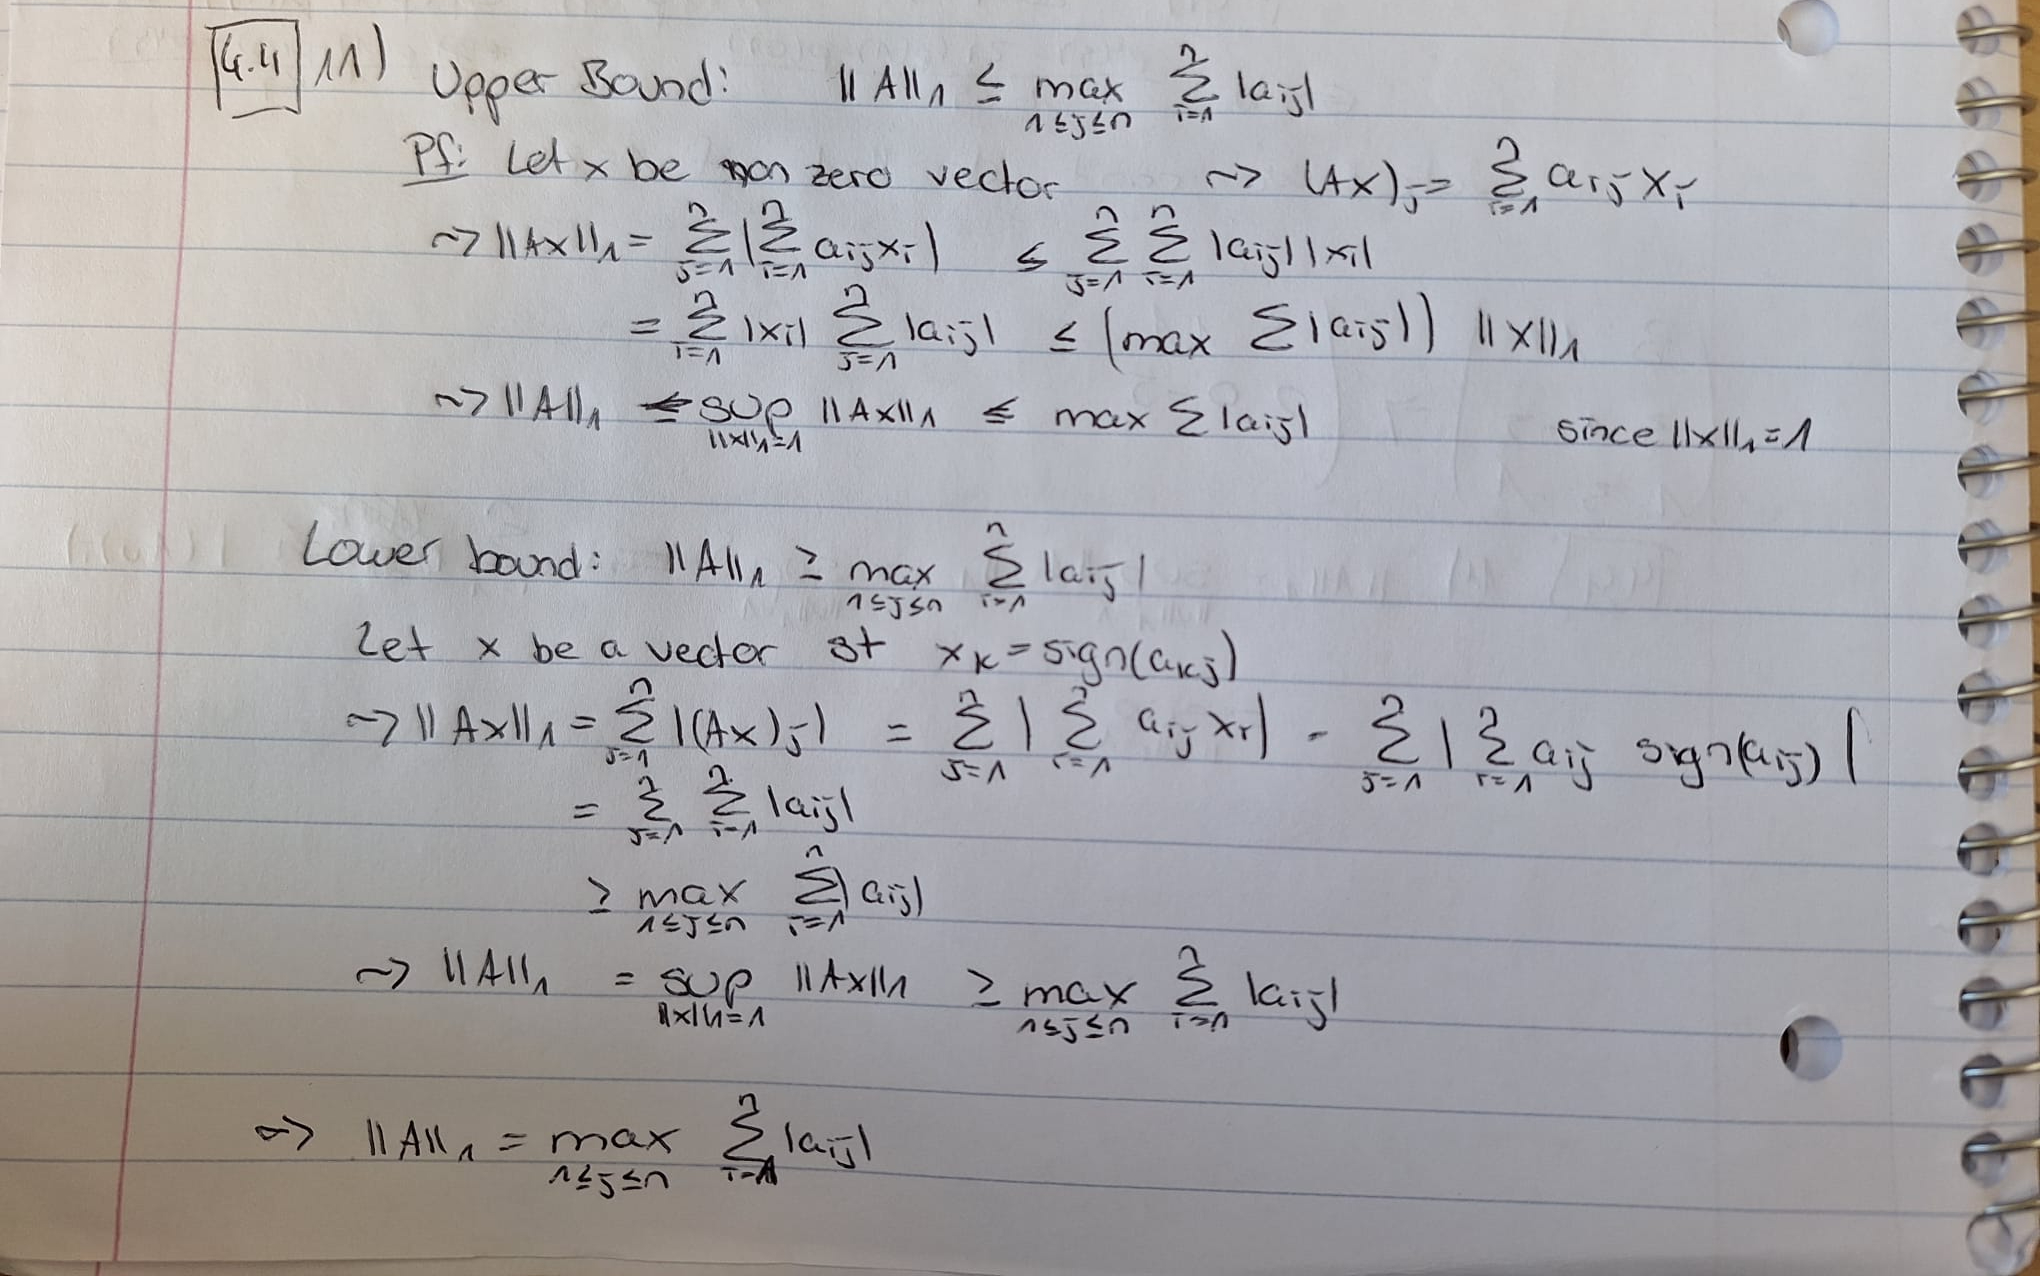 4.4 11) Upper Bound: ||A||₁ ≤ max_{1≤j≤n} Σ_{i=1}^n |a_ij|
Pf: Let x be non zero vector ~> (Ax)_j = Σ_{i=1}^n a_ij x_i
~> ||Ax||₁ = Σ_{j=1}^n |Σ_{i=1}^n a_ij x_i| ≤ Σ_{j=1}^n Σ_{i=1}^n |a_ij| |x_i|
= Σ_{i=1}^n |x_i| Σ_{j=1}^n |a_ij| ≤ (max Σ|a_ij|) ||x||₁
~> ||A||₁ = sup_{||x||₁=1} ||Ax||₁ ≤ max Σ|a_ij| since ||x||₁=1
Lower bound: ||A||₁ ≥ max_{1≤j≤n} Σ_{i=1}^n |a_ij|
Let x be a vector st x_k = sign(a_kj)
~> ||Ax||₁ = Σ_{j=1}^n |(Ax)_j| = Σ_{j=1}^n | Σ_{i=1}^n a_ij x_i| = Σ_{j=1}^n | Σ_{i=1}^n a_ij sign(a_ij) |
= Σ_{j=1}^n Σ_{i=1}^n |a_ij|
≥ max_{1≤j≤n} Σ_{i=1}^n |a_ij|
~> ||A||₁ = sup_{||x||₁=1} ||Ax||₁ ≥ max_{1≤j≤n} Σ_{i=1}^n |a_ij|
~> ||A||₁ = max_{1≤j≤n} Σ_{i=1}^n |a_ij|